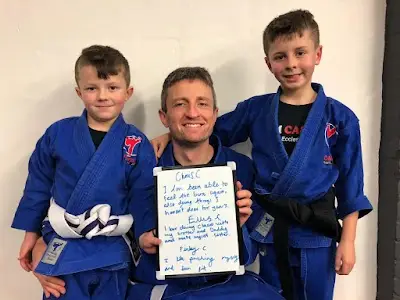 Chris C
I have been able to
feel the burn again,
also doing things I
haven't done for years.
Ellis C
I love doing class with
my brother and Daddy
and
Finley C
I like pushing myself
and fit
CA
Eccles